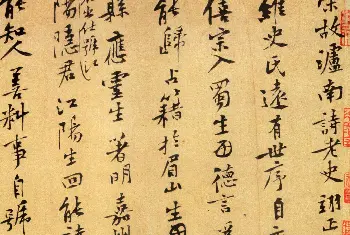 故瀘南詩老史翊正
維史氏遠有世序自
僖宗入蜀生曰德言
能歸占籍於眉山生
縣應靈生著明嘉
陽隱君江陽生回能詩
能知人善料事自號